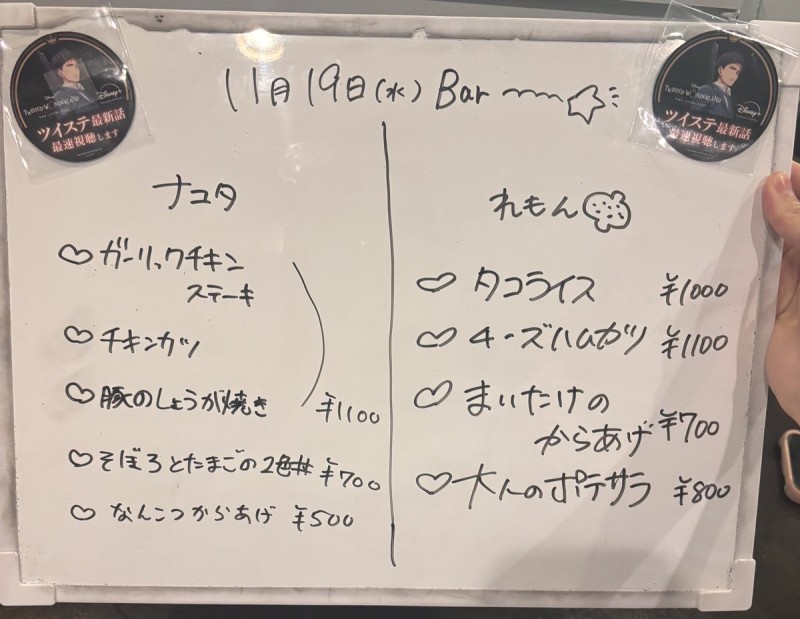 11月19日(水) Bar
ナユタ
ガーリックチキン
ステーキ
チキンカツ
豚のしょうが焼き ¥1100
そぼろとたまごの2色丼 ¥700
なんこつからあげ ¥500
れもん
タコライス ¥1000
チーズハムカツ ¥1100
まいたけの
からあげ ¥700
大人のポテサラ ¥800
Disney
TWISTED WONDERLAND
Disney+
ツイステ最新話
最速視聴します
Disney
TWISTED WONDERLAND
Disney+
ツイステ最新話
最速視聴します